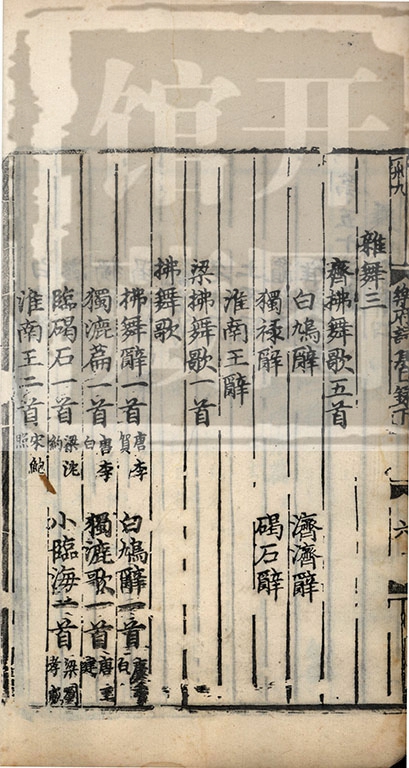 雜舞三
齊拂舞歌五首
白鳩辭 濟濟辭
獨祿辭 碣石辭
淮南王辭
梁拂舞歌一首
拂舞歌
拂舞辭一首 唐李賀 白鳩辭一首 白
獨漉篇一首 唐李白 獨漉歌一首 唐王建
臨碣石一首 梁沈約 小臨海一首 梁劉孝威
淮南王二首 宋鮑照
樂府詩集目錄下
六